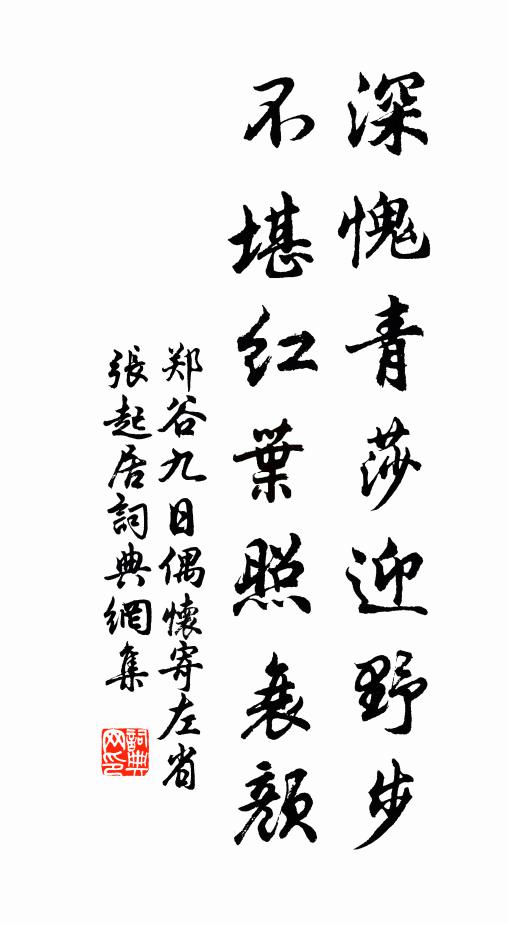 深愧青莎迎野步
不堪红葉照衰顔
郑谷九日偶懷寄左省
張起居詞典網集
詞典
网印